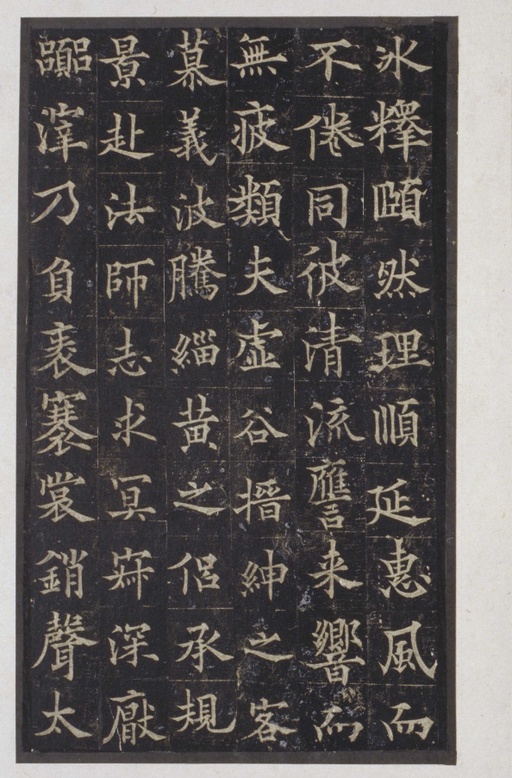 氷釋頤然理順延惠風而
不倦同彼清流譍来響而
無疲類夫虛谷搢紳之客
慕義波騰緇黄之侶承規
景赴法師志求冥寂深厭
嚻滓乃負袠褰裳銷聲太